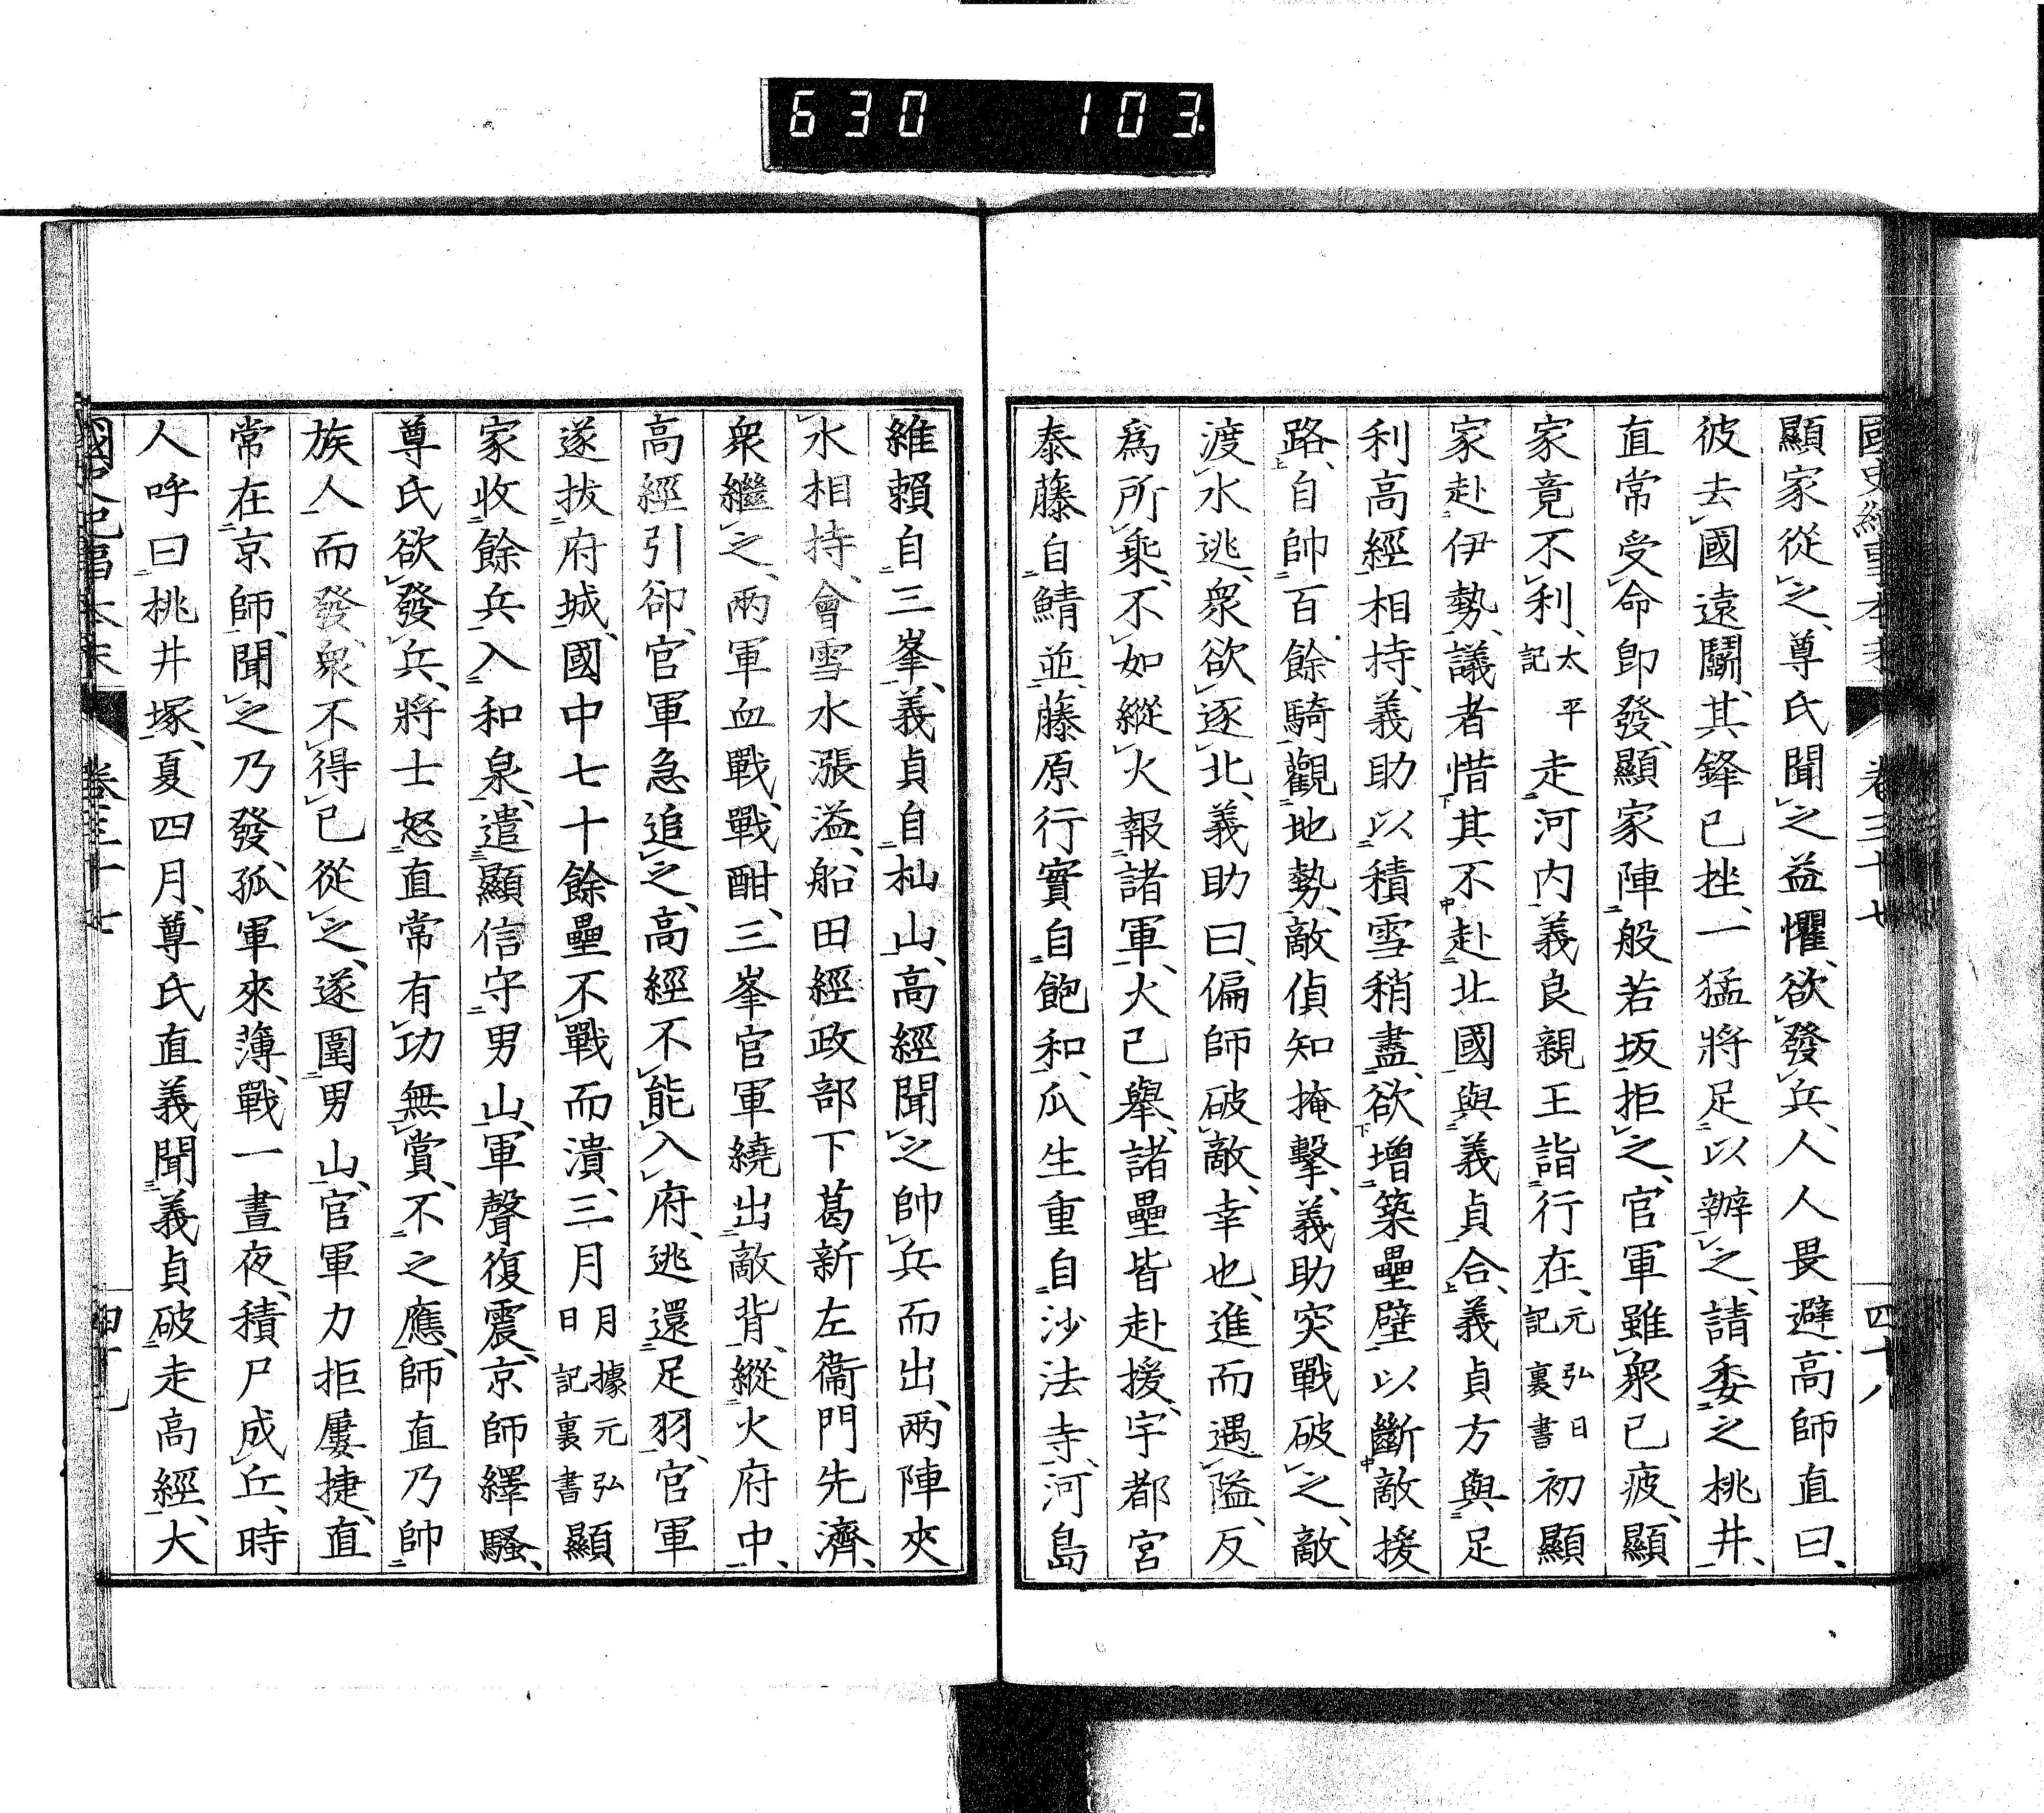 630 103
國史紀事本末 卷三十七 四十八
顯家從之、尊氏聞之益懼、欲發兵、人人畏避、高師直曰、
彼去國遠鬭、其鋒已挫、一猛將足以辦之、請委之桃井、
直常受命卽發、顯家陣般若坂拒之、官軍雖衆已疲、顯
家竟不利、太平記走河內、義良親王詣行在、元弘日記裏書初顯
家赴伊勢、議者惜其不赴北國與義貞合、義貞方與足
利高經相持、義助以積雪稍盡、欲增築壘壁、以斷敵援
路、自帥百餘騎觀地勢、敵偵知掩擊、義助突戰破之、敵
渡水逃、衆欲逐北、義助曰、偏師破敵、幸也、進而遇隘、反
爲所乘、不如縱火報諸軍、火已舉、諸壘皆赴援、宇都宮
泰藤自鯖並、藤原行實自飽和、瓜生重自沙法寺、河島
維賴自三峯、義貞自杣山、高經聞之帥兵而出、兩陣夾
水相持、會雪水漲溢、船田經政部下葛新左衞門先濟、
衆繼之、兩軍血戰、戰酣、三峯官軍繞出敵背、縱火府中、
高經引卻、官軍急追之、高經不能入府、逃還足羽、官軍
遂拔府城、國中七十餘壘不戰而潰、三月月據元弘日記裏書顯
家收餘兵入和泉、遣顯信守男山、軍聲復震、京師繹騷、
尊氏欲發兵、將士怒直常有功無賞、不之應、師直乃帥
族人而發、衆不得已從之、遂圍男山、官軍力拒屢捷、直
常在京師、聞之乃發、孤軍來薄、戰一晝夜、積尸成丘、時
人呼曰桃井塚、夏四月、尊氏直義聞義貞破走高經、大
國史紀事本末 卷三十七 四十九